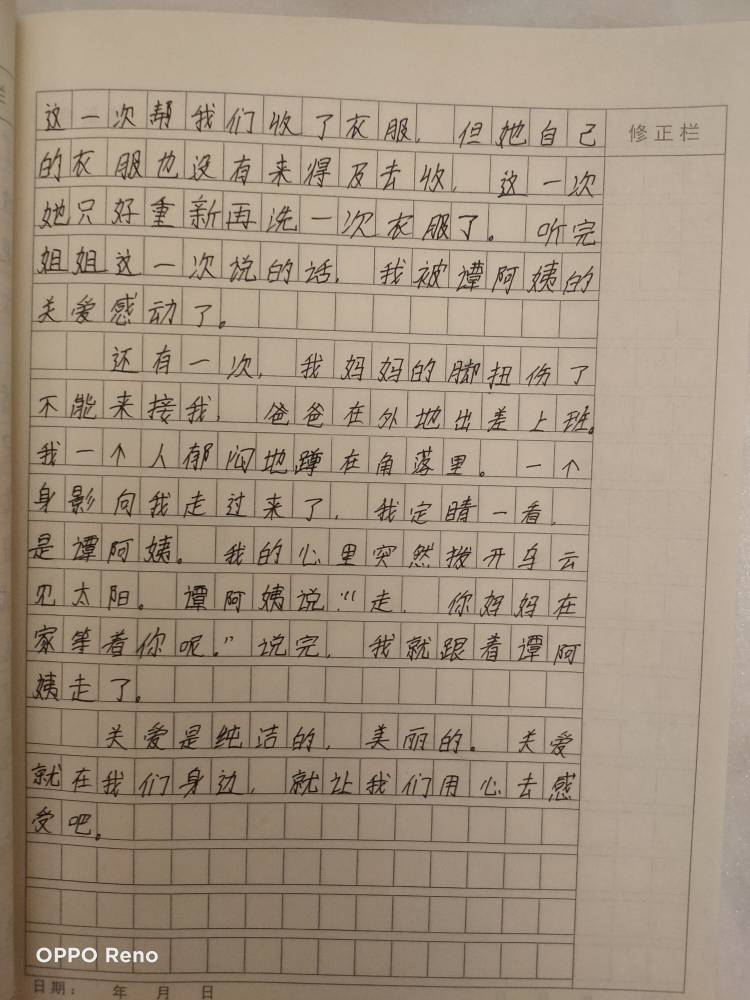 这一次帮我们收了衣服，但她自己
修正栏
的衣服也没有来得及去收，这一次
她只好重新再洗一次衣服了。听完
姐姐这一次说的话，我被谭阿姨的
关爱感动了。
还有一次，我妈妈的脚扭伤了
不能来接我，爸爸在外地出差上班。
我一个人郁闷地蹲在角落里。一个
身影向我走过来了，我定睛一看，
是谭阿姨。我的心里突然拨开乌云
见太阳。谭阿姨说：“走，你妈妈在
家等着你呢。”说完，我就跟着谭阿
姨走了。
关爱是纯洁的，美丽的。关爱
就在我们身边，就让我们用心去感
受吧。
OPPO Reno
日期： 年 月 日